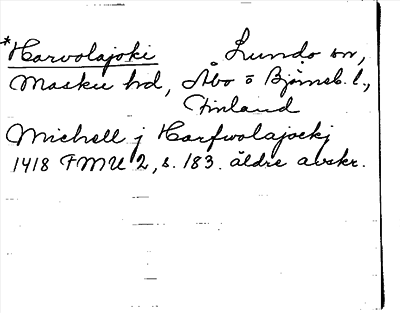 *Harvolajoki Lundo sn,
Masku hd, Åbo o Björneb. l.,
Finland
Michell j Harfwolajoekj
1418 FMU 2, s. 183. äldre avskr.